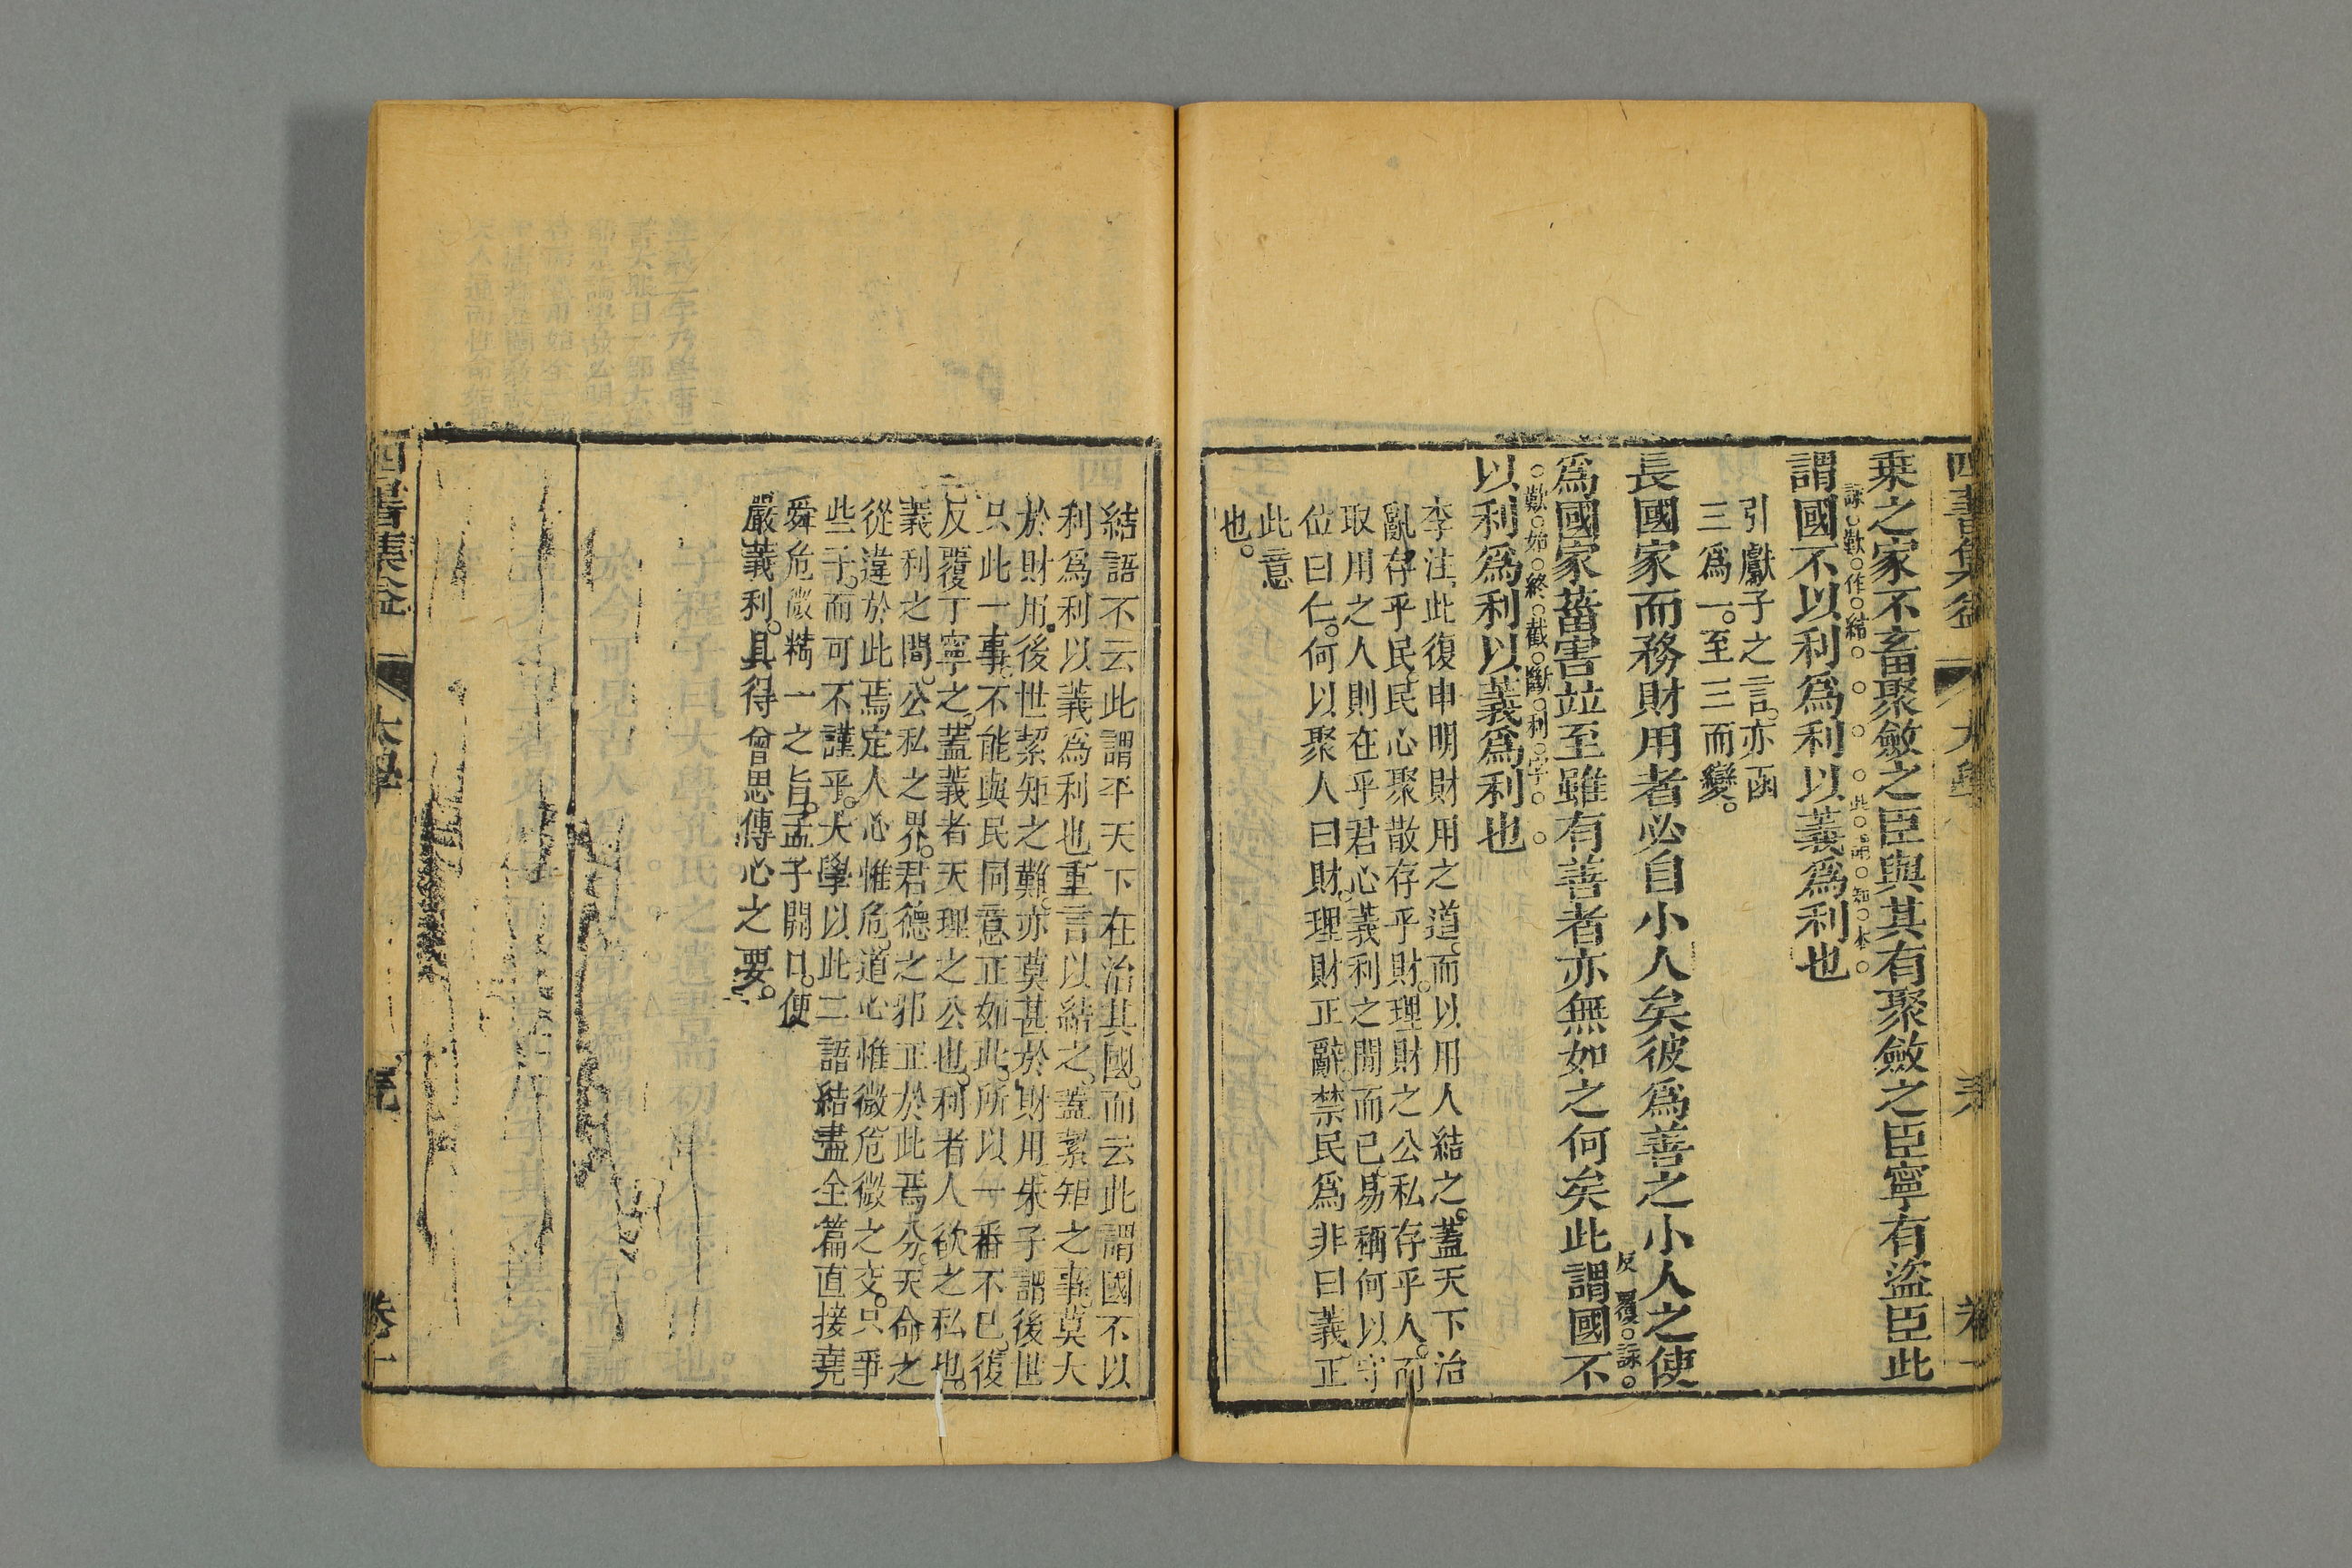 乗之家不畜聚斂之臣與其有聚斂之臣寧有盜臣此
詠歎作結
謂國不以利爲利以義爲利也
引獻子之言。亦函
三爲一。至三而變。
長國家而務財用者必自小人矣彼爲善之小人之使
反覆詠
爲國家菑害竝至雖有善者亦無如之何矣此謂國不
歎始終截斷利字
以利爲利以義爲利也
李注此復申明財用之道。而以用人結之。蓋天下治
亂存乎民。民心聚散存乎財。理財之公私存乎人。而
取用之人則在乎君心義利之間而已。易稱何以守
位曰仁。何以聚人曰財。理財正辭。禁民爲非曰義。正
此意
也。
四書集益
大學
結語不云此謂平天下在治其國。而云此謂國不以
利爲利以義爲利也。重言以結之。蓋絜矩之事。莫大
於財用。後世絜矩之難。亦莫甚於財用。朱子謂後世
只此一事。不能與民同意正如此。所以一番不已。復
反覆丁寧之。蓋義者天理之公也。利者人欲之私也。
義利之間。公私之界。君德之邪正於此焉分。天命之
從違於此焉定。人心惟危。道心惟微。危微之交。只爭
些子。而可不謹乎。大學以此二語結盡全篇直接堯
舜危微精一之旨。孟子開口。便
嚴義利。具得曾思傳心之要。
四書集益
大學
卷十